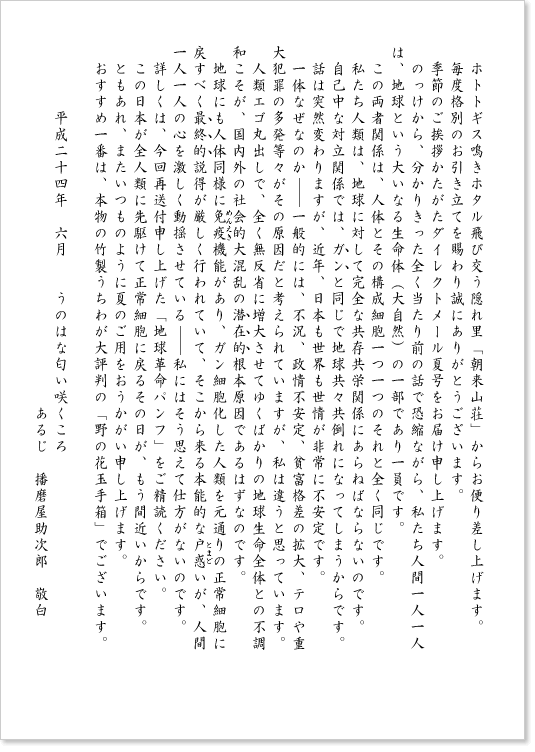 ホトトギス鳴きホタル飛び交う隠れ里「朝来山荘」からお便り差し上げます。
毎度格別のお引き立てを賜わり誠にありがとうございます。
季節のご挨拶かたがたダイレクトメール夏号をお届け申し上げます。
のっけから、分かりきった全く当たり前の話で恐縮ながら、私たち人間一人一人
は、地球という大いなる生命体（大自然）の一部であり一員です。
この両者関係は、人体とその構成細胞一つ一つのそれと全く同じです。
私たち人類は、地球に対して完全な共存共栄関係にあらねばならないのです。
自己中な対立関係では、ガンと同じで地球共々共倒れになってしまうからです。
話は突然変わりますが、近年、日本も世界も世情が非常に不安定です。
一体なぜなのか――一般的には、不況、政情不安定、貧富格差の拡大、テロや重
大犯罪の多発等々がその原因だと考えられていますが、私は違うと思っています。
人類エゴ丸出しで、全く無反省に増大させてゆくばかりの地球生命全体との不調
和こそが、国内外の社会的大混乱の潜在的根本原因であるはずなのです。
地球にも人体同様に免疫機能があり、ガン細胞化した人類を元通りの正常細胞に
戻すべく最終的説得が厳しく行われていて、そこから来る本能的な戸惑いが、人間
一人一人の心を激しく動揺させている――私にはそう思えて仕方がないのです。
詳しくは、今回再送付申し上げた「地球革命パンフ」をご精読ください。
この日本が全人類に先駆けて正常細胞に戻るその日が、もう間近いからです。
ともあれ、またいつものように夏のご用をおうかがい申し上げます。
おすすめ一番は、本物の竹製うちわが大評判の「野の花玉手箱」でございます。
平成二十四年　六月　うのはな匂い咲くころ
あるじ　播磨屋助次郎　敬白